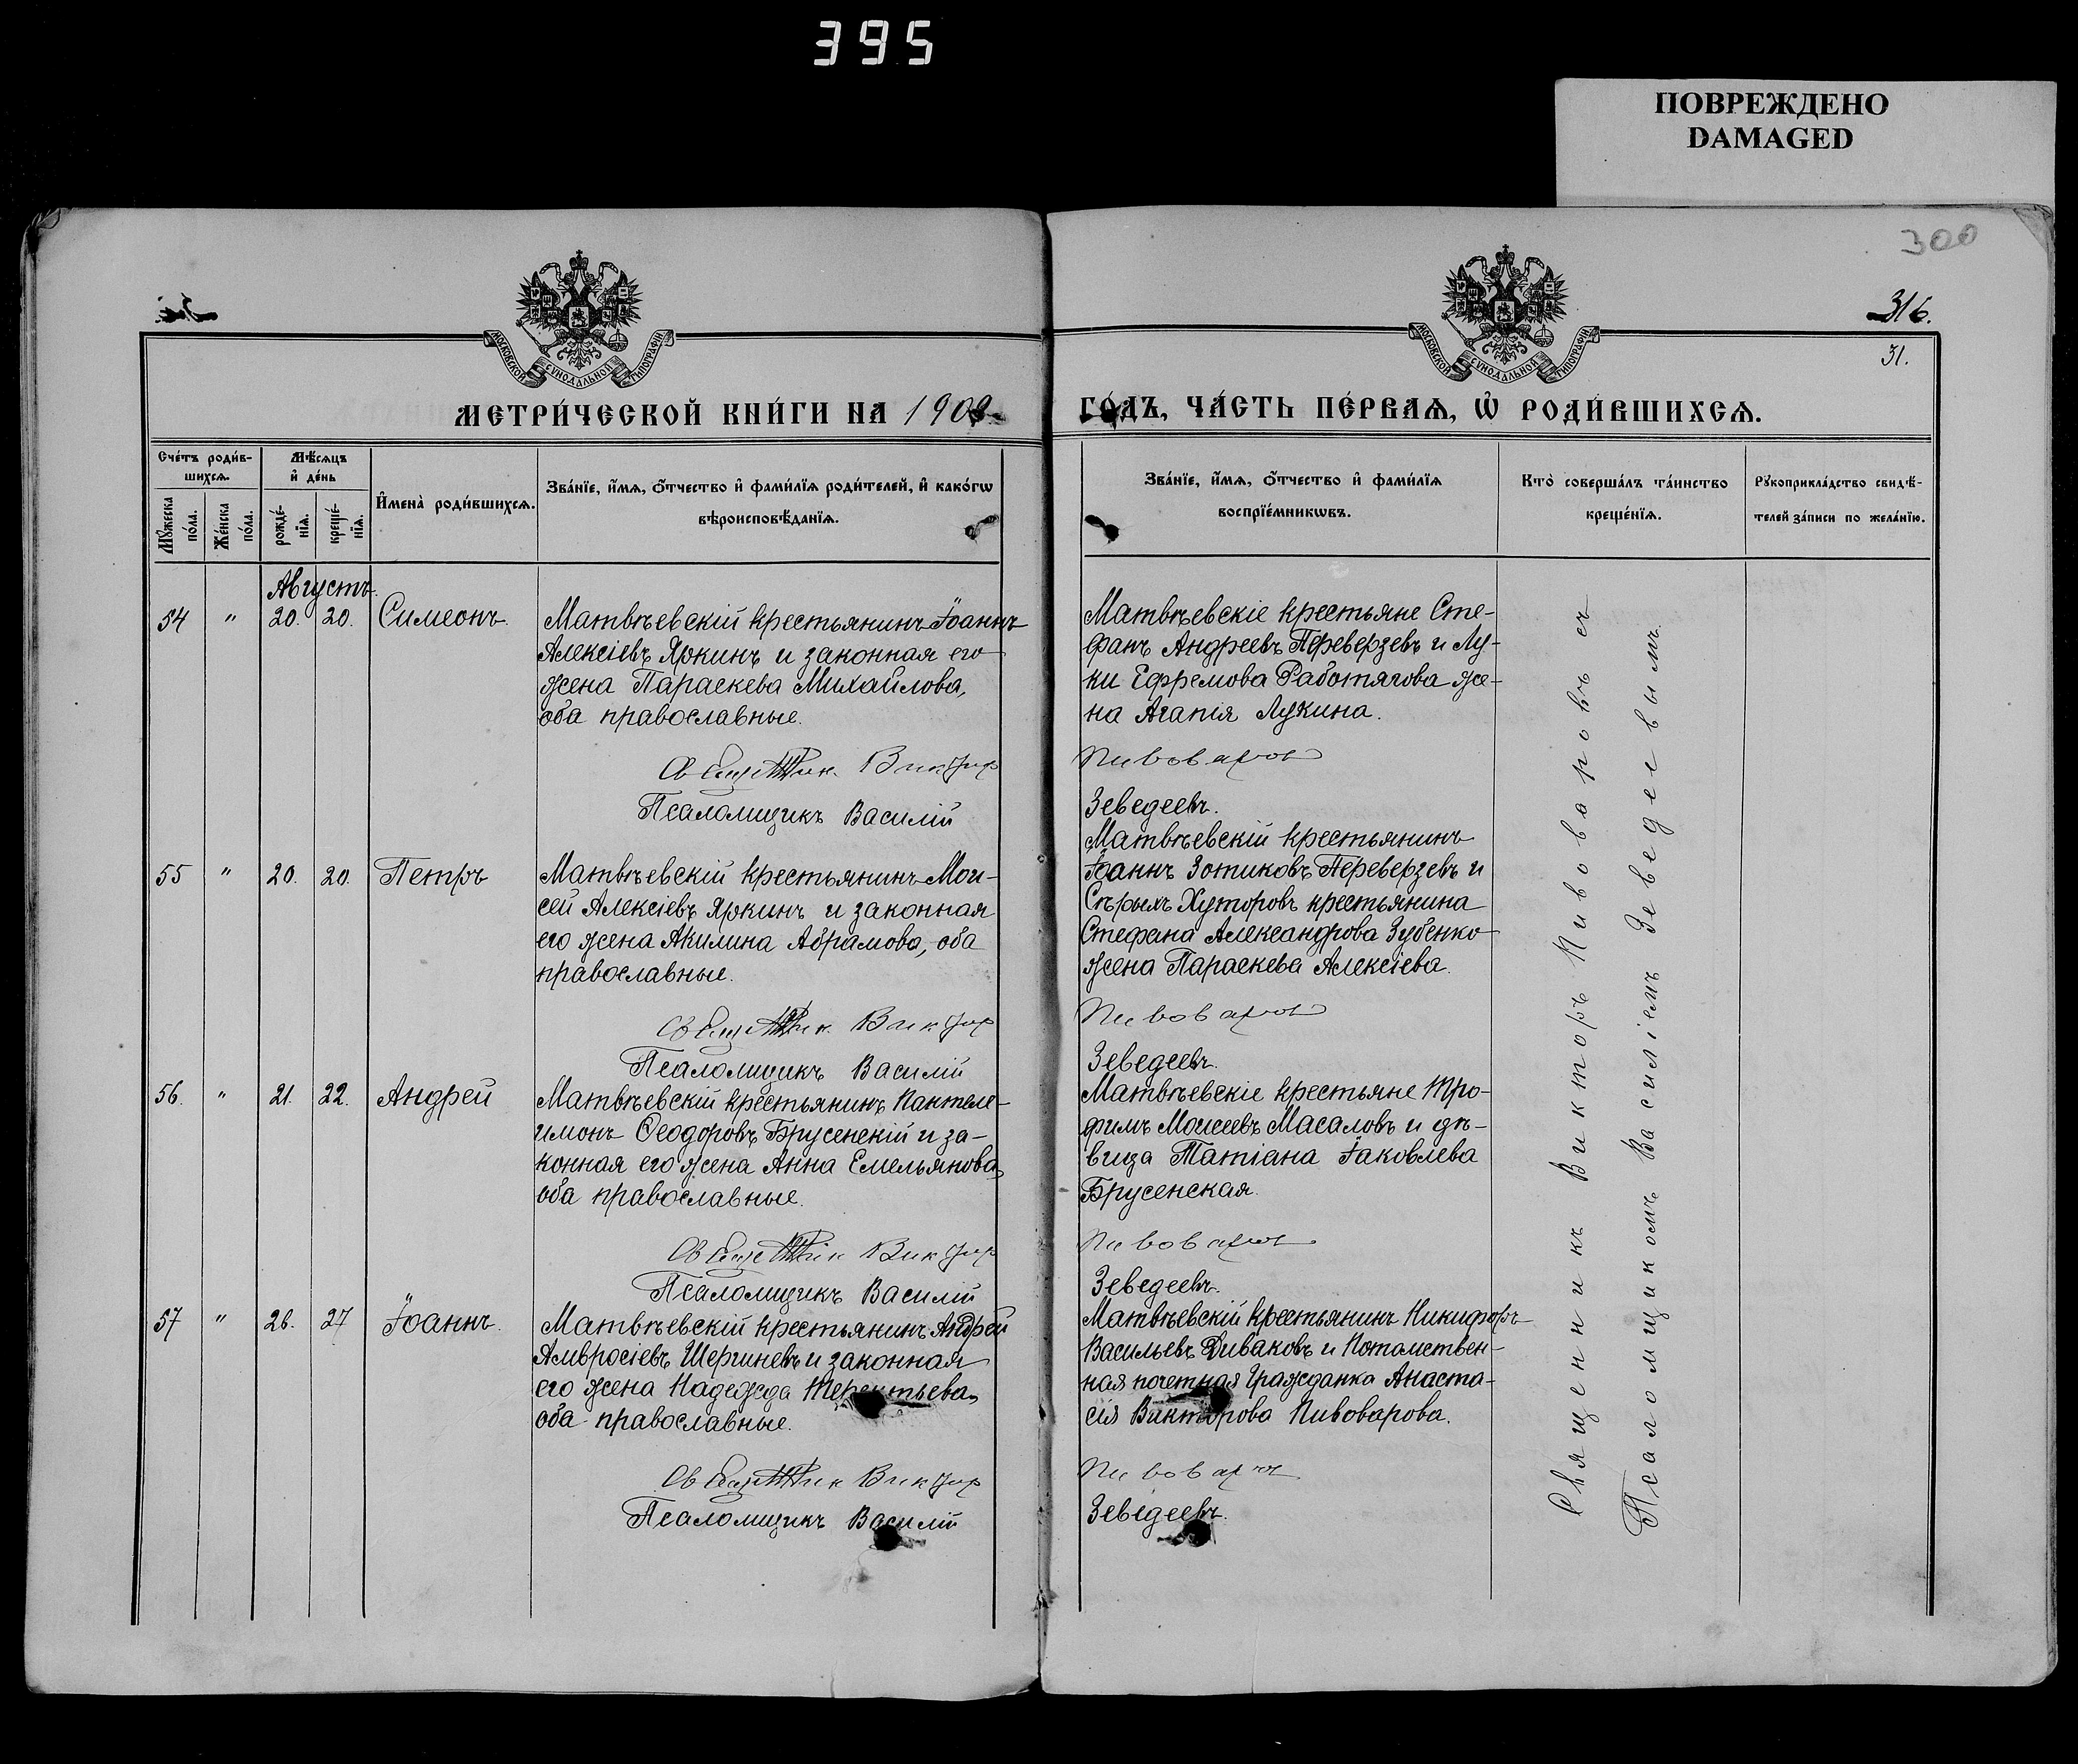 395
ПОВРЕЖДЕНО
DAMAGED
300
316.
31.
МОСКОВСКОЙ СѴНОДАЛЬНОЙ ТИПОГРАФІИ
МОСКОВСКОЙ СѴНОДАЛЬНОЙ ТИПОГРАФІИ
МЕТРИ́ЧЕСКОЙ КНИ́ГИ НА 190
ГО́ДЪ, ЧА́СТЬ ПЕ́РВАѦ, Ѡ҆ РОДИ́ВШИХСѦ.
Сче́тъ роди́в-
шихсѧ.
Мꙋ́жеска
по́ла.
Же́нска
по́ла.
Мѣ́сѧцъ
и҆ де́нь
рожде́-
нїѧ.
креще́-
нїѧ.
И҆мена̀ роди́вшихсѧ.
Зва́нїе, и҆́мѧ, ѻ҆́тчество и҆ фами́лїѧ роди́телей, и҆ како́гѡ
вѣроисповѣ́данїѧ.
Зва́нїе, и҆́мѧ, ѻ҆́тчество и҆ фами́лїѧ
воспрїе́мникѡвъ.
Кто̀ соверша́лъ та́инство
креще́нїѧ.
Рꙋкоприкла́дство свидѣ́-
телей за́писи по жела́нїю.
Августъ.
54 " 20. 20. Симеонъ.
Матвѣевскій крестьянинъ Іоаннъ
Алексіевъ Яркинъ и законная его
жена Параскева Михайлова,
оба православные.
Священник. Виктор
Псаломщикъ Василій
Матвѣевскіе крестьяне Сте-
фанъ Андреевъ Переверзевъ и Лу-
ки Ефремова Работягова же-
на Агапія Лукина.
Пивоваров
Зеведеевъ.
55 " 20. 20. Петръ
Матвѣевскій крестьянинъ Мои-
сей Алексіевъ Яркинъ и законная
его жена Акилина Абрамова, оба
православные.
Священник. Виктор
Псаломщикъ Василій
Матвѣевскій крестьянинъ
Іоаннъ Зотиковъ Переверзевъ и
Сѣрыхъ Хуторовъ крестьянина
Стефана Александрова Зубенко
жена Параскева Алексіева.
Пивоваров
Зеведеевъ.
56. " 21. 22. Андрей
Матвѣевскій крестьянинъ Пантеле-
имонъ Ѳеодоровъ Брусенскій и за-
конная его жена Анна Емельянова,
оба православные.
Священнік Виктор
Псаломщикъ Василій
Матвѣевскіе крестьяне Тро-
фимъ Моисеевъ Масаловъ и дѣ-
вица Татіана Іаковлева
Брусенская.
Пивоваров
Зеведеевъ.
57 " 26. 27 Іоаннъ.
Матвѣевскій крестьянинъ Андрей
Амвросіевъ Шергиневъ и законная
его жена Надежда Терентьева,
оба православные.
Священник Виктор
Псаломщикъ Василій
Матвѣевскій крестьянинъ Никифоръ
Васильевъ Диваковъ и Потомствен-
ная почетная Гражданка Анаста-
сія Викторова Пивоварова.
Пивоваров
Зеведеевъ.
Священникъ Викторъ Пивоваровъ съ
Псаломщикомъ Василіемъ Зеведеевымъ.